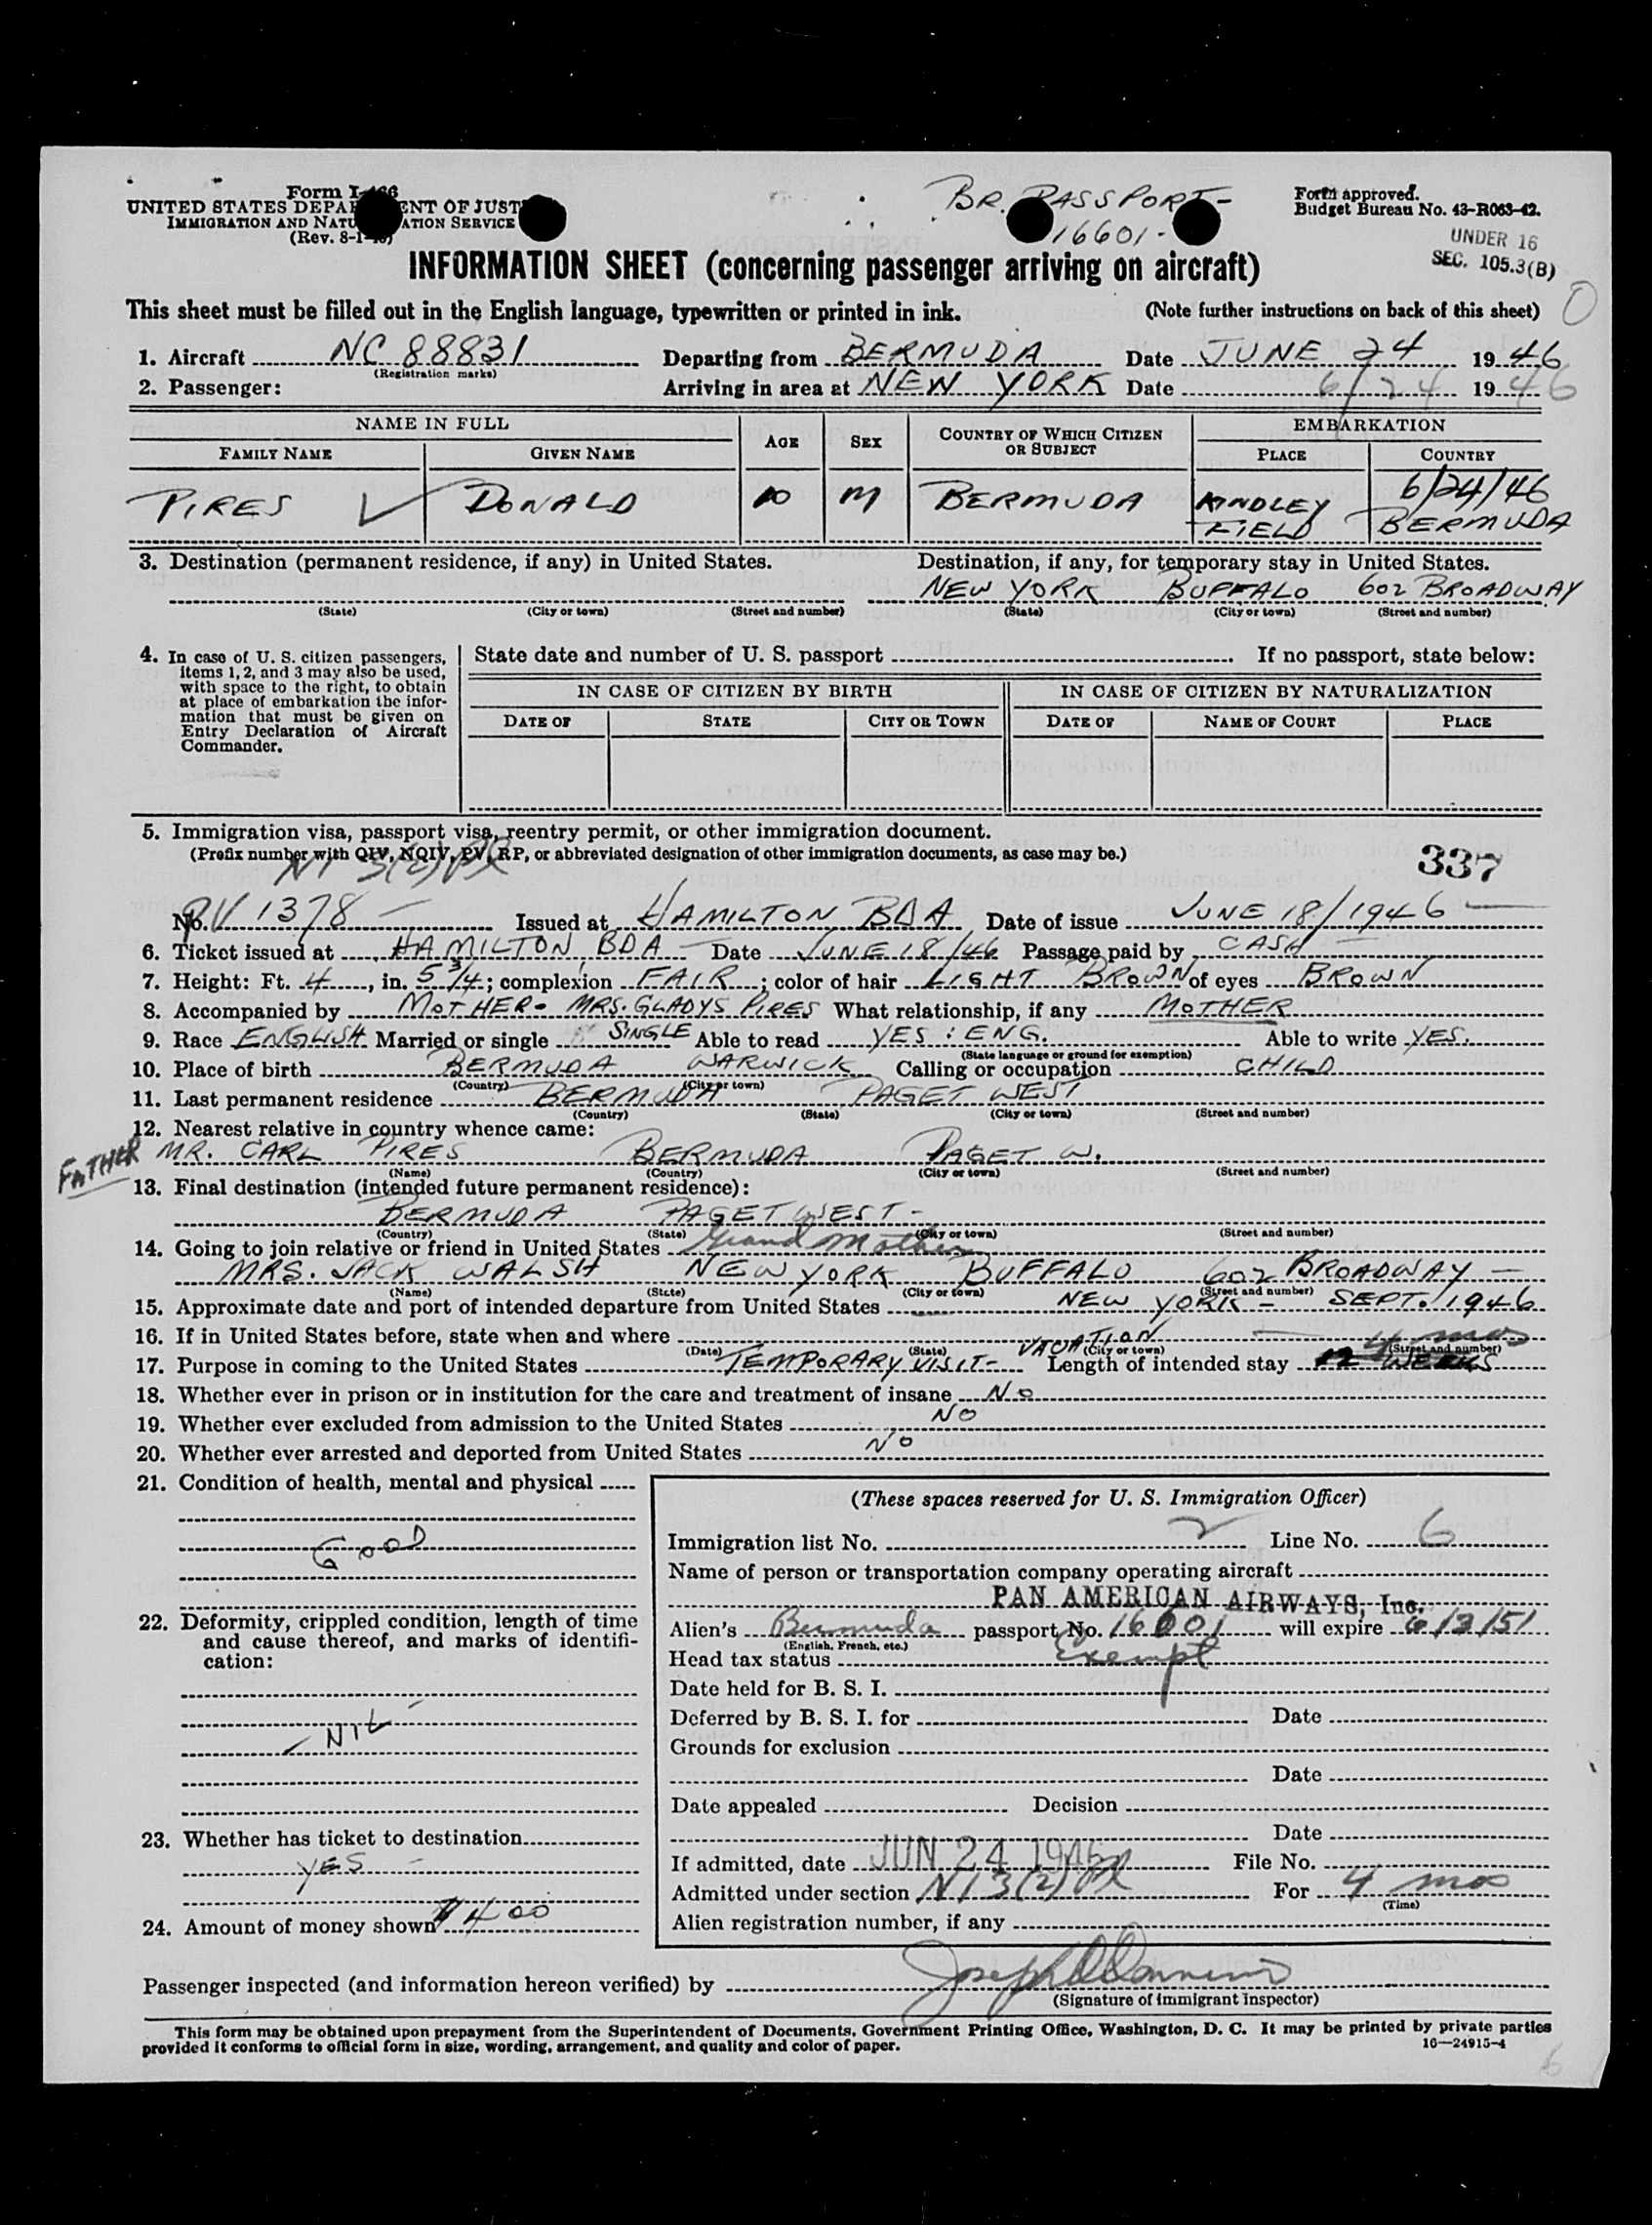 Form I-466
UNITED STATES DEPARTMENT OF JUSTICE
IMMIGRATION AND NATURALIZATION SERVICE
(Rev. 8-1-
BR. PASSPORT -
16601-
Form approved.
Budget Bureau No. 43-R063-42.
UNDER 16
SEC. 105.3(B)
INFORMATION SHEET (concerning passenger arriving on aircraft)
This sheet must be filled out in the English language, typewritten or printed in ink. (Note further instructions on back of this sheet)
1. Aircraft NC 88831 Departing from BERMUDA Date JUNE 24 1946
(Registration marks)
2. Passenger: Arriving in area at NEW YORK Date 6/24 1946
NAME IN FULL AGE SEX COUNTRY OF WHICH CITIZEN OR SUBJECT EMBARKATION
FAMILY NAME GIVEN NAME PLACE COUNTRY
PIRES DONALD 10 M BERMUDA KINDLEY FIELD 6/24/46 BERMUDA
3. Destination (permanent residence, if any) in United States. Destination, if any, for temporary stay in United States.
NEW YORK BUFFALO 602 BROADWAY
(State) (City or town) (Street and number) (State) (City or town) (Street and number)
4. In case of U. S. citizen passengers, items 1, 2, and 3 may also be used, with space to the right, to obtain at place of embarkation the information that must be given on Entry Declaration of Aircraft Commander.
State date and number of U. S. passport If no passport, state below:
IN CASE OF CITIZEN BY BIRTH IN CASE OF CITIZEN BY NATURALIZATION
DATE OF STATE CITY OR TOWN DATE OF NAME OF COURT PLACE
5. Immigration visa, passport visa, reentry permit, or other immigration document.
(Prefix number with QIV, NQIV, PV, RP, or abbreviated designation of other immigration documents, as case may be.)
337
NI 3(2) PL
No. PV 1378 - Issued at HAMILTON BDA Date of issue JUNE 18/1946
6. Ticket issued at HAMILTON, BDA Date JUNE 18/46 Passage paid by CASH
7. Height: Ft. 4, in. 5 3/4; complexion FAIR; color of hair LIGHT BROWN of eyes BROWN
8. Accompanied by MOTHER - MRS. GLADYS PIRES What relationship, if any MOTHER
9. Race ENGLISH Married or single SINGLE Able to read YES : ENG. Able to write YES.
(State language or ground for exemption)
10. Place of birth BERMUDA WARWICK Calling or occupation CHILD
(Country) (City or town)
11. Last permanent residence BERMUDA PAGET WEST
(Country) (State) (City or town) (Street and number)
12. Nearest relative in country whence came:
FATHER MR. CARL PIRES BERMUDA PAGET W.
(Name) (Country) (City or town) (Street and number)
13. Final destination (intended future permanent residence):
BERMUDA PAGET WEST -
(Country) (State) (City or town) (Street and number)
14. Going to join relative or friend in United States Grand Mother
MRS. JACK WALSH NEW YORK BUFFALO 602 BROADWAY -
(Name) (State) (City or town) (Street and number)
15. Approximate date and port of intended departure from United States NEW YORK - SEPT. 1946
16. If in United States before, state when and where
(Date) (State) (City or town) (Street and number)
17. Purpose in coming to the United States TEMPORARY VISIT - VACATION Length of intended stay 12 WEEKS 4 mos
18. Whether ever in prison or in institution for the care and treatment of insane No
19. Whether ever excluded from admission to the United States NO
20. Whether ever arrested and deported from United States NO
21. Condition of health, mental and physical
GOOD
22. Deformity, crippled condition, length of time and cause thereof, and marks of identification:
NIL
23. Whether has ticket to destination
YES -
24. Amount of money shown $400
(These spaces reserved for U. S. Immigration Officer)
Immigration list No. 2 Line No. 6
Name of person or transportation company operating aircraft
PAN AMERICAN AIRWAYS, Inc.
Alien's Bermuda passport No. 16601 will expire 6/3/51
(English, French, etc.)
Head tax status Exempt
Date held for B. S. I.
Deferred by B. S. I. for Date
Grounds for exclusion
Date
Date appealed Decision
Date
If admitted, date JUN 24 1946 File No.
Admitted under section NI 3(2) PL For 4 mos
(Time)
Alien registration number, if any
Passenger inspected (and information hereon verified) by
(Signature of immigrant inspector)
This form may be obtained upon prepayment from the Superintendent of Documents, Government Printing Office, Washington, D. C. It may be printed by private parties
provided it conforms to official form in size, wording, arrangement, and quality and color of paper. 16—24915-4
6